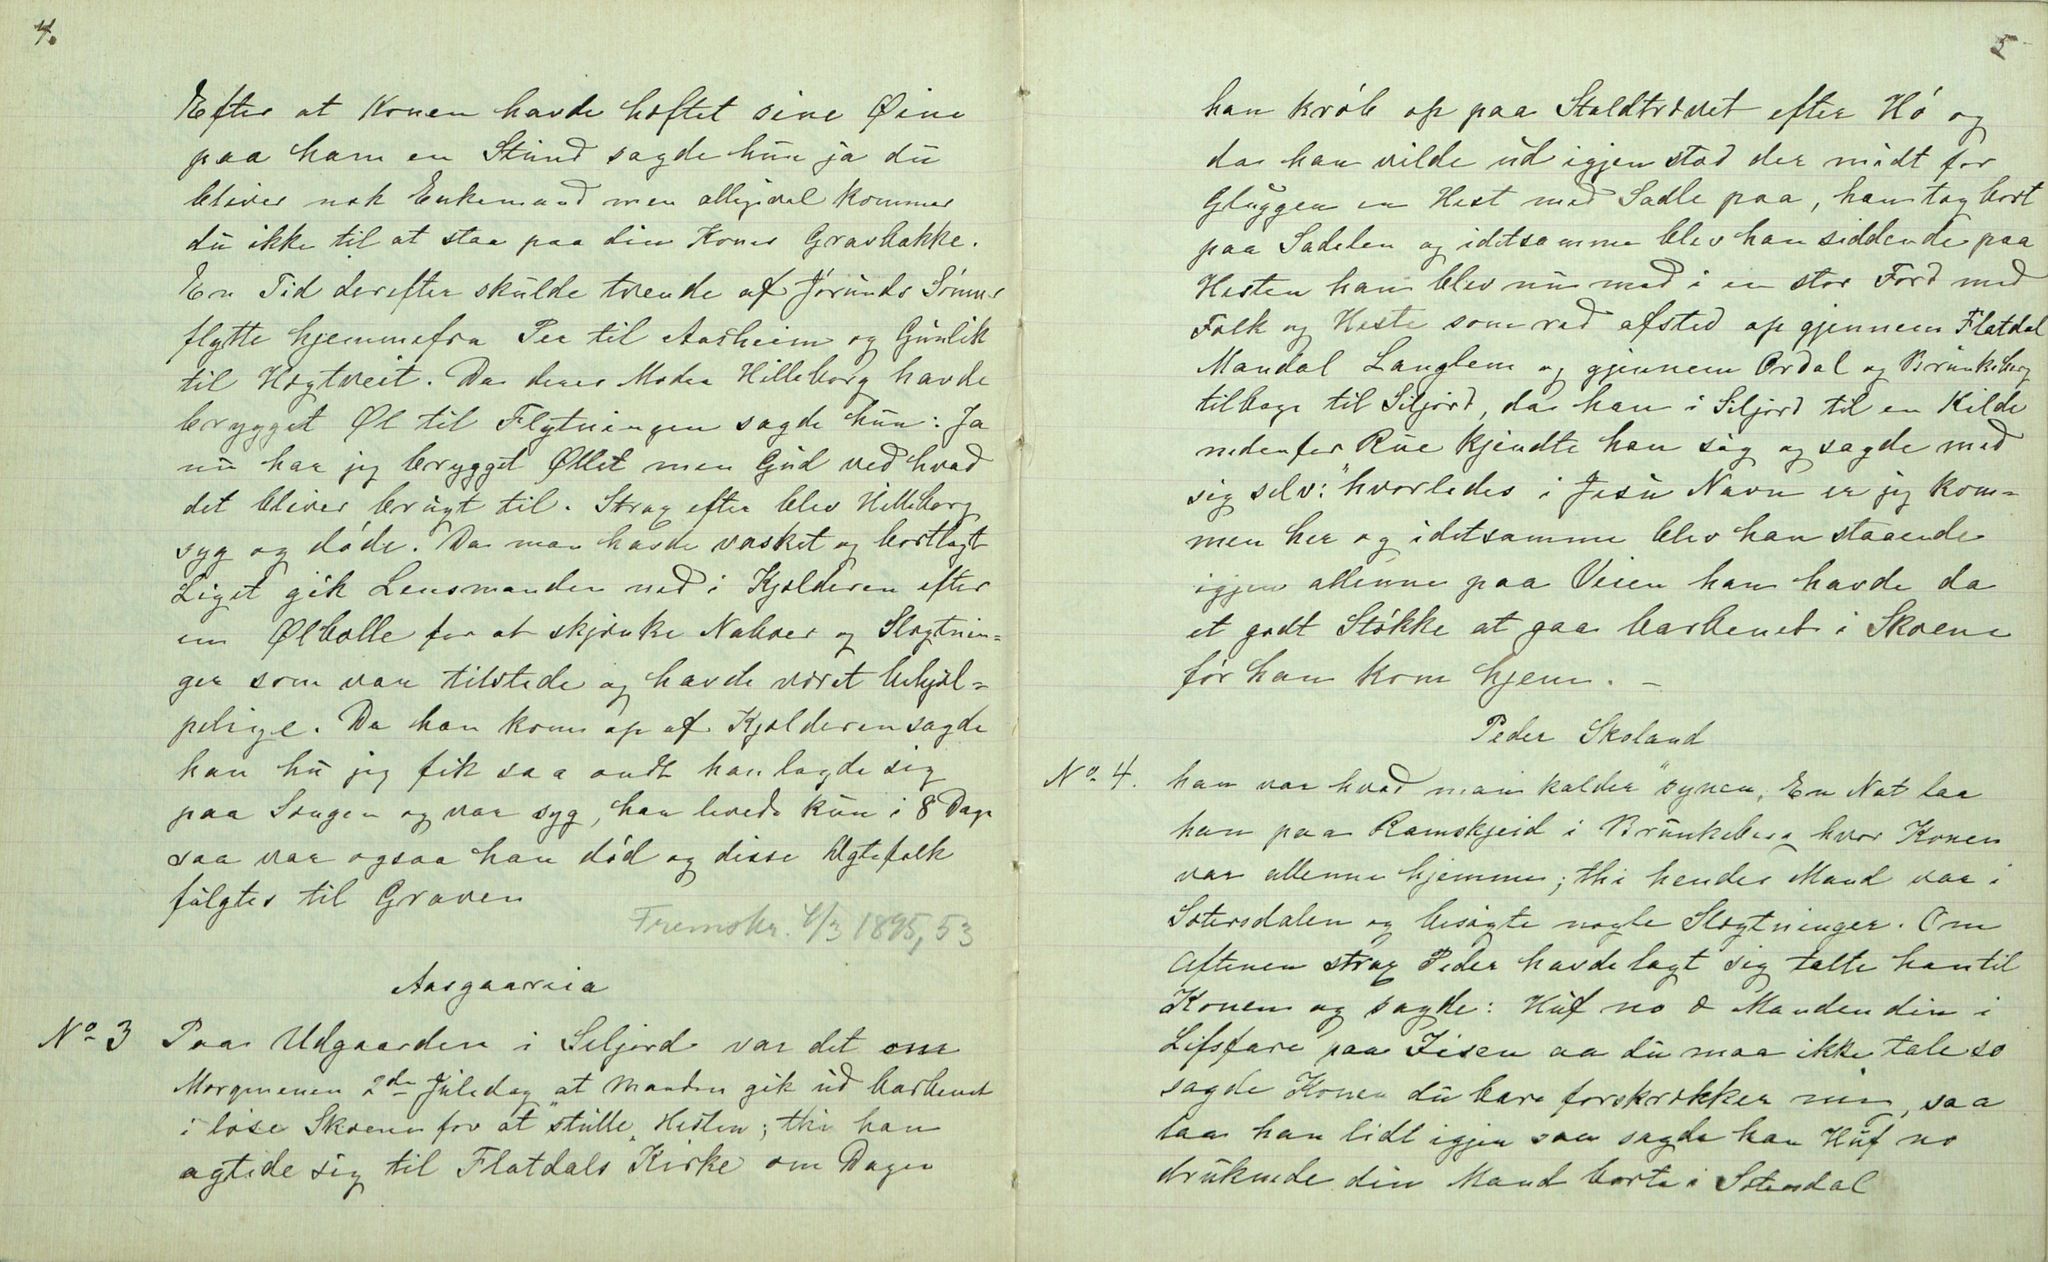 4.
Efter at Konen havde hæftet sine Øine
paa ham en Stund sagde hun ja du
bliver nok Enkemand men alligevel kommer
du ikke til at staa paa din Kones Gravbakke.
En Tid derefter skulde tvende af Jørunds Sønner
flytte hjemmefra Per til Aasheim og Gunlik
til Høgtveit. Da deres Moder Hilleborg havde
brygget Øl til Flytningen sagde hun: Ja
nu har jeg brygget Øllet men Gud ved hvad
det bliver brugt til. Strax efter blev Hilleborg
syg og døde. Da man havde vasket og bortlagt
Liget gik Lensmanden ned i Kjælderen efter
en Ølbolle for at skjænke Naboer og Slægtnin=
ger som var tilstede og havde været behjæl=
pelige. Da han kom op af Kjælderen sagde
han hu jeg fik saa ondt han lagde sig
paa Sengen og var syg, han levede kun i 8 Dage
saa var ogsaa han død og disse Ægtefolk
fulgtes til Graven
Fremskr. 4/3 1895, 53
Aasgaarreia
No 3 Paa Udgaarden i Seljord var det om
Morgenen 2den Juledag at Manden gik ud barbenet
i løse Skoene for at "stulle" Hesten; thi han
agtede sig til Flatdals Kirke om Dagen
5
han krøb op paa Staldtrævet efter Hø og
da han vilde ud igjen stod der midt for
Gluggen en Hest med Sadle paa, han tog bort
paa Sadelen og idetsamme blev han siddende paa
Hesten han blev nu med i en stor Færd med
Folk og Heste som red afsted op gjennem Flatdal
Mandal Langlem og gjennem Ordal og Brunkeberg
tilbage til Seljord, da han i Seljord til en Kilde
nedenfor Rue kjendte han sig og sagde med
sig selv: "hvorledes i Jesu Navn er jeg kom=
men her og idetsamme blev han staaende
igjen allenne paa Veien han havde da
et godt Støkke at gaa barbenet i Skoene
før han kom hjem. –
Peder Skoland
No 4. han var hvad man kalder "synen, En Nat laa
han paa Ramskjeid i Brunkeberg hvor Konen
var allenne hjemme; thi hendes Mand var i
Sætersdalen og besøgte nogle Slægtninger. Om
Aftenen strax Peder havde lagt sig talte han til
Konen og sagde: Huf no æ Manden din i
Lifsfare paa Iisen aa du maa ikke tale so
sagde Konen du bare forskrækker min, saa
laa han lidt igjen saa sagde han Huf no
druknede din Mand borte i Sætersdal